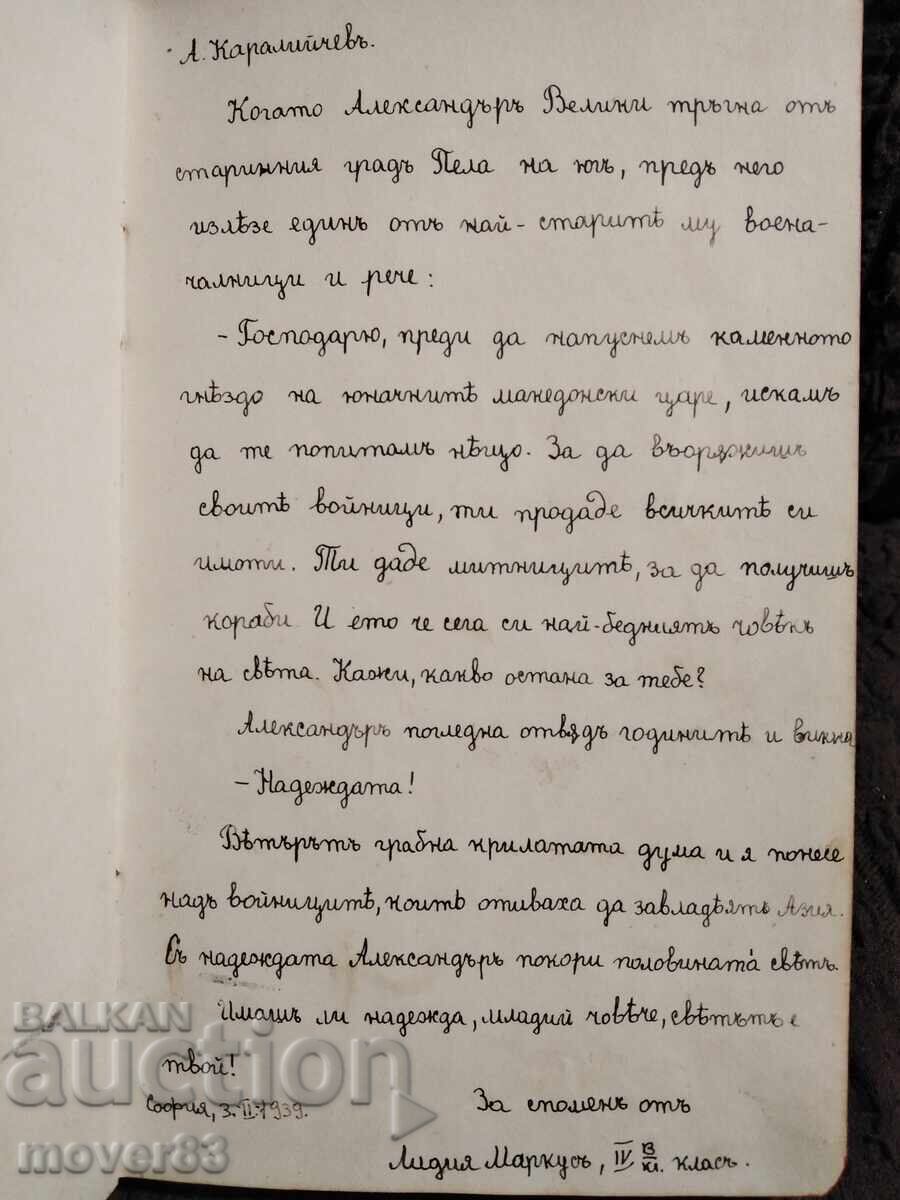 А. Каралийчевъ.
Когато Александъръ Велики тръгна отъ
старинния градъ Пела на югъ, предъ него
излѣзе единъ отъ най-старитѣ му воена-
чалници и рече:
- Господарю, преди да напуснемъ каменното
гнѣздо на юначнитѣ македонски царе, искамъ
да те попитамъ нѣщо. За да въорѫжишъ
своитѣ войници, ти продаде всичкитѣ си
имоти. Ти даде митницитѣ, за да получишъ
кораби. И ето че сега си най-бедниятъ човѣкъ
на свѣта. Кажи, какво остана за тебе?
Александъръ погледна отвѫдъ годинитѣ и викна
- Надеждата!
Вѣтърътъ грабна крилатата дума и я понесе
надъ войницитѣ, които отиваха да завладѣятъ Азия.
Съ надеждата Александъръ покори половината свѣтъ.
Имашъ ли надежда, младий човѣче, свѣтътъ е
твой!
София, 3.II.1939.
За споменъ отъ
Лидия Маркусъ, IV В кл. класъ.
BALKAN
auction
mover83